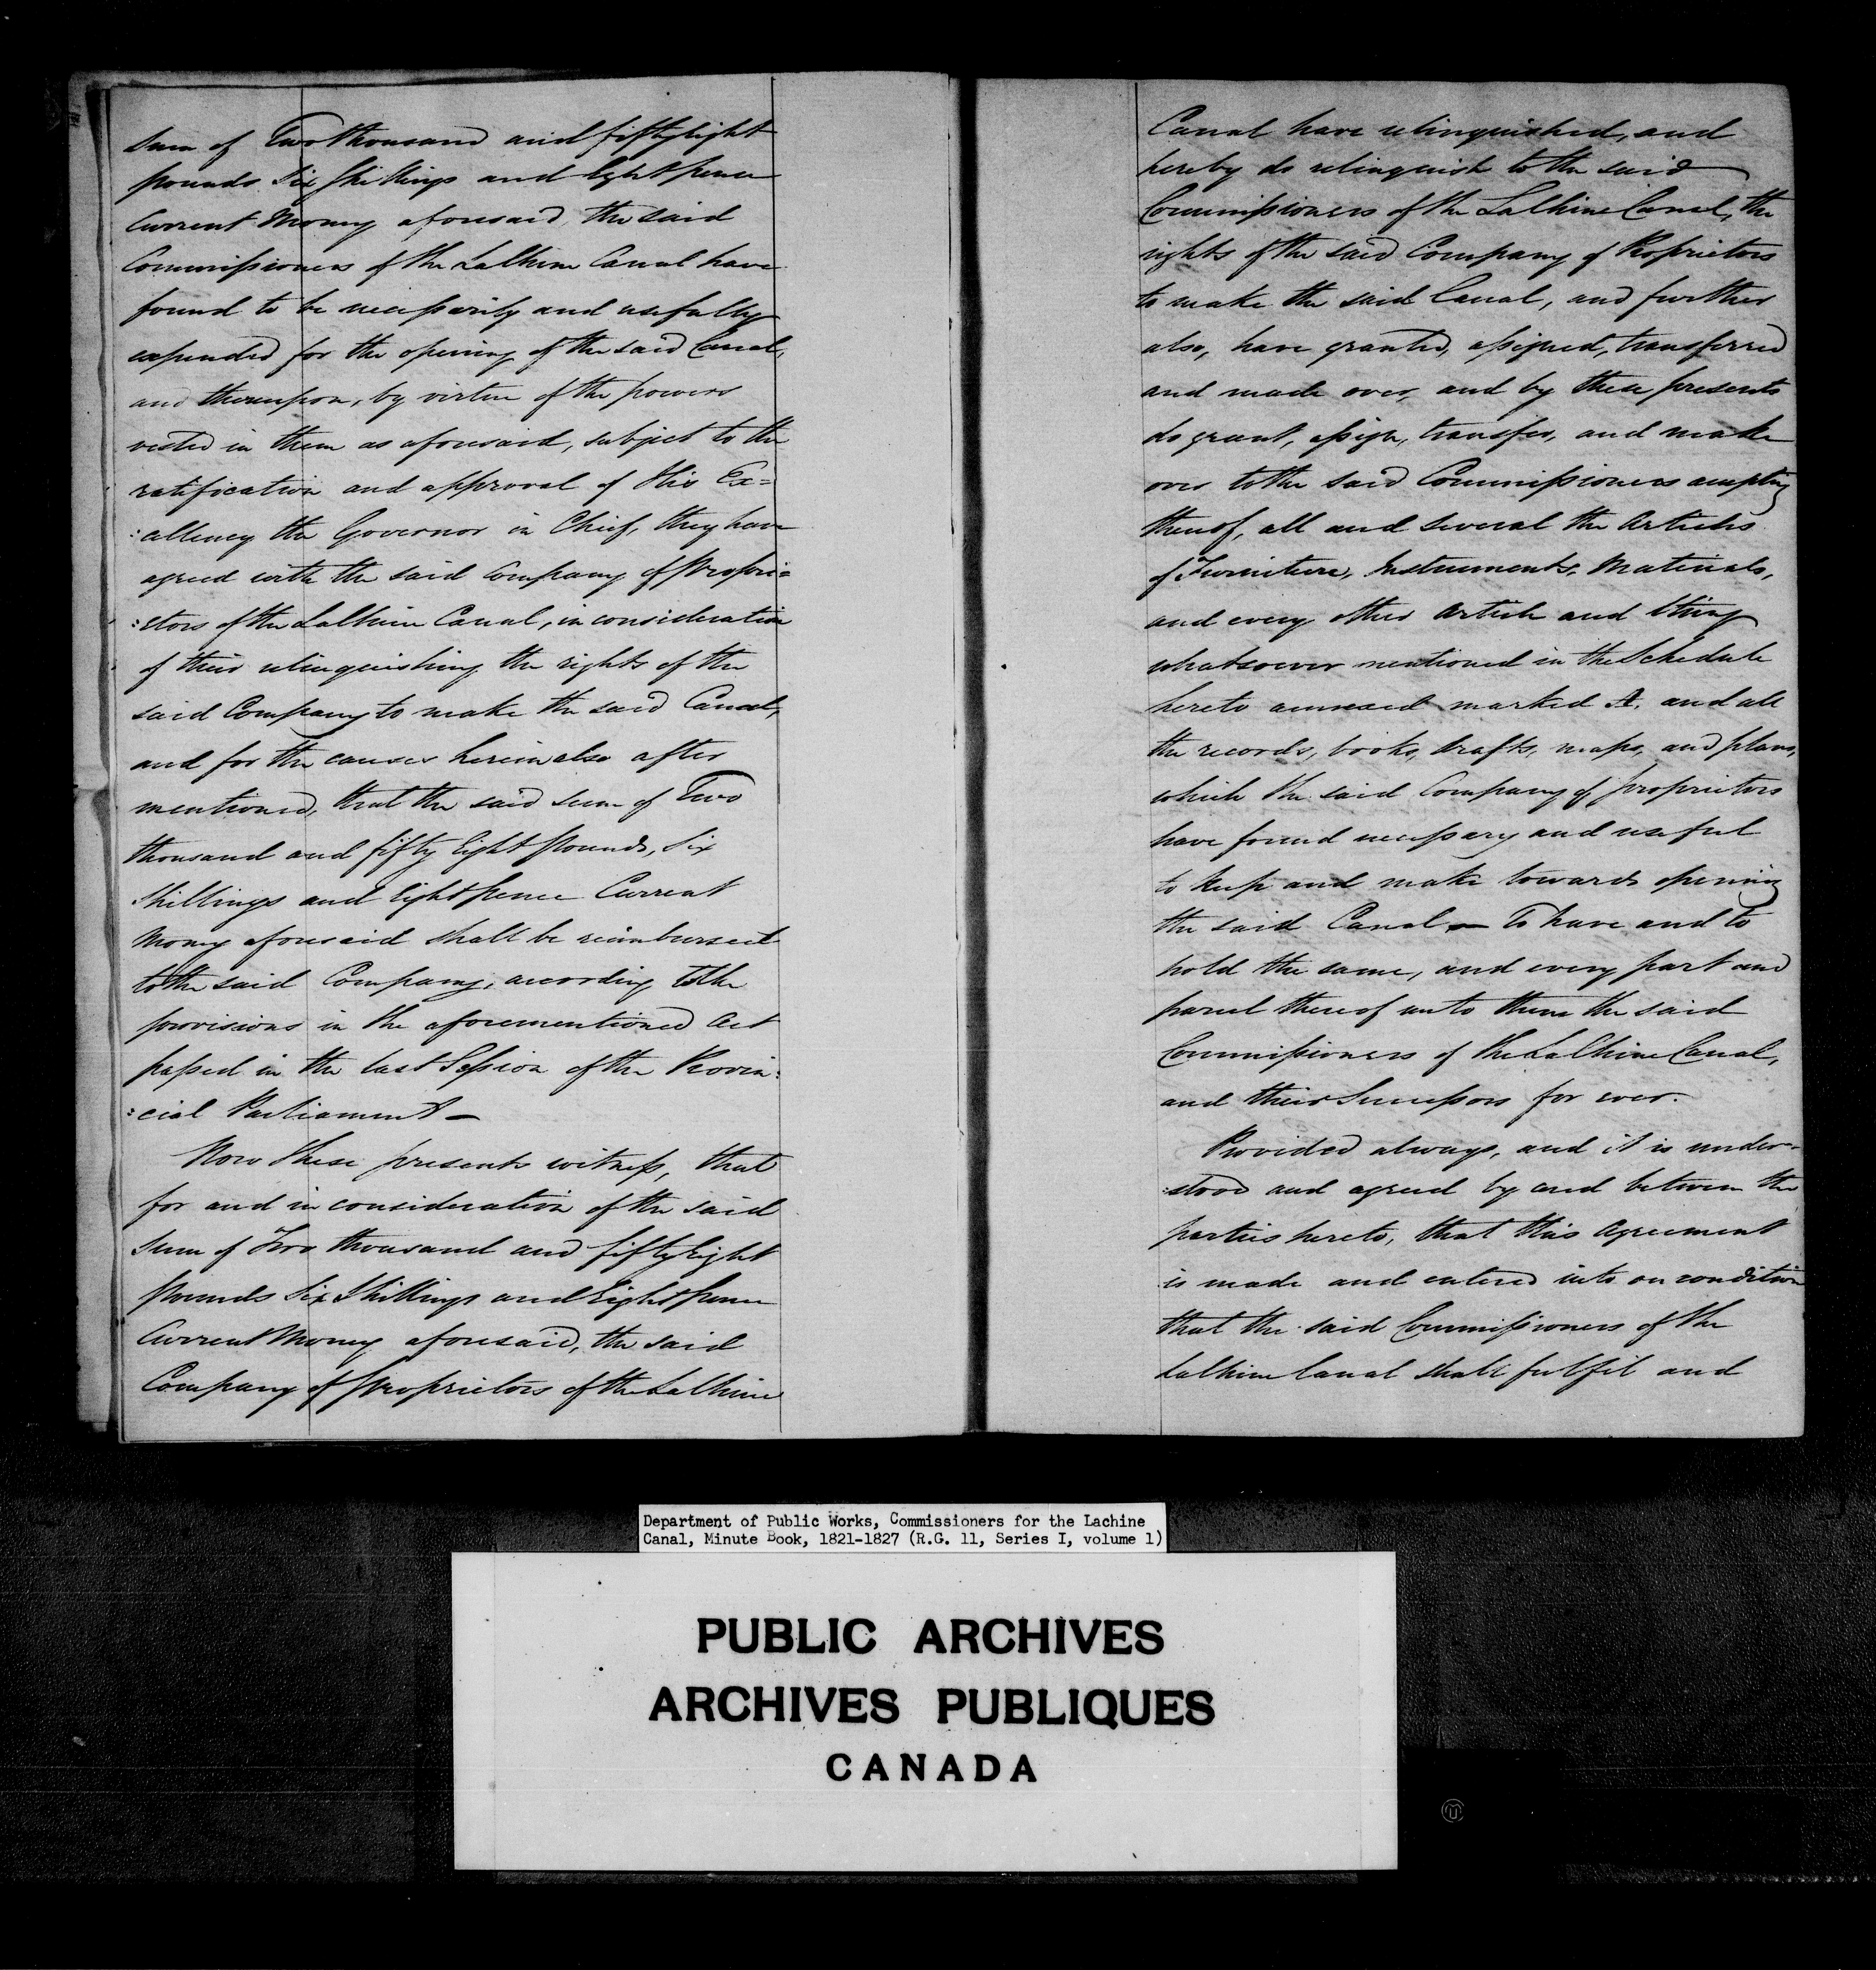 Sum of Two thousand and fifty eight
pounds Six Shillings and Eight pence
Current Money aforesaid, the said
Commissioners of the LaChine Canal have
found to be necessarily and usefully
expended for the opening of the said Canal,
and thereupon, by virtue of the powers
vested in them as aforesaid, subject to the
ratification and approval of His Ex=
:cellency the Governor in Chief, they have
agreed with the said Company of Propri=
:etors of the LaChine Canal, in consideration
of their relinquishing the rights of the
said Company to make the said Canal,
and for the causes herein also after
mentioned, that the said sum of Two
thousand and fifty Eight Pounds, Six
Shillings and Eight pence Current
Money aforesaid shall be reimbursed
to the said Company, according to the
provisions in the aforementioned Act
passed in the last Session of the Provin:
:cial Parliament —
Now these presents witness, that
for and in consideration of the said
Sum of Two thousand and fifty Eight
Pounds Six Shillings and Eight pence
Current Money aforesaid, the said
Company of Proprietors of the LaChine
Canal have relinquished, and
hereby do relinquish to the said
Commissioners of the LaChine Canal, the
rights of the said Company of Proprietors
to make the said Canal, and further
also, have granted, assigned, transferred
and made over, and by these presents
do grant, assign, transfer, and make
over to the said Commissioners accepting
thereof, all and several the Articles
of Furniture, Instruments, Materials,
and every other Article and thing
whatsoever mentioned in the Schedule
hereto annexed marked A, and all
the records, books, drafts, maps, and plans,
which the said Company of Proprietors
have found necessary and useful
to keep and make towards opening
the said Canal — To have and to
hold the same, and every part and
parcel thereof unto them the said
Commissioners of the LaChine Canal,
and their Successors for ever.
Provided always, and it is under=
:stood and agreed by and between the
parties hereto, that this Agreement
is made and entered into on condition
that the said Commissioners of the
LaChine Canal shall fulfil and
Department of Public Works, Commissioners for the Lachine
Canal, Minute Book, 1821-1827 (R.G. 11, Series I, volume 1)
PUBLIC ARCHIVES
ARCHIVES PUBLIQUES
CANADA